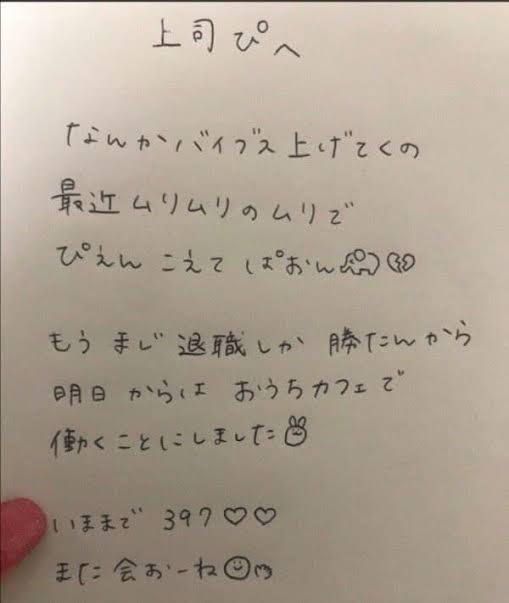 上司ぴへ
なんかバイブス上げてくの
最近ムリムリのムリで
ぴえん こえて ぱおん🐘💔
もう まじ 退職しか 勝たんから
明日 からは おうちカフェで
働くことにしました🐰
いままで 397♡♡
また 会おーね☺